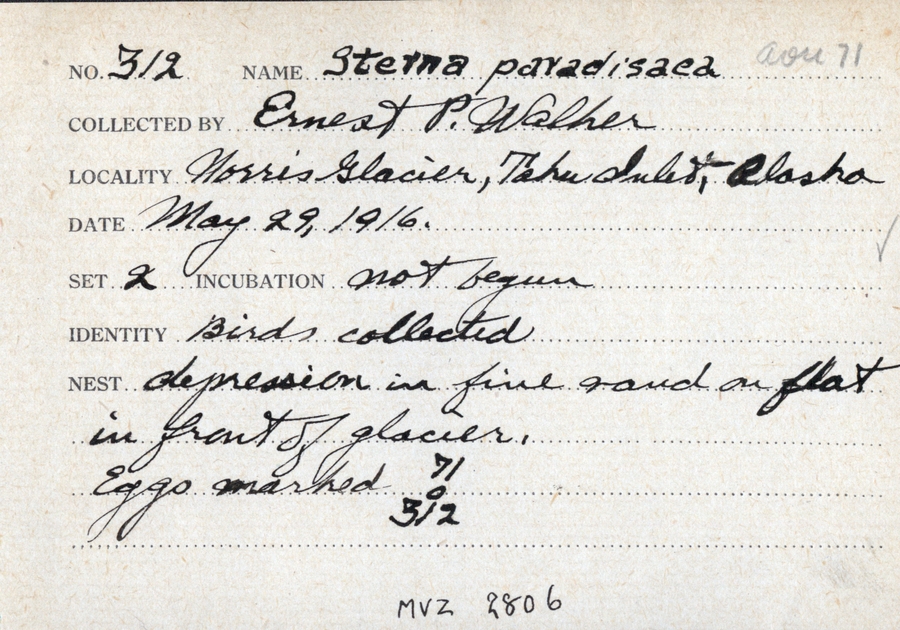 NO. 312 NAME Sterna paradisaea aou 71
COLLECTED BY Ernest P. Walker
LOCALITY Norris Glacier, Taku Inlet, Alaska
DATE May 29, 1916.
SET 2 INCUBATION not begun
IDENTITY Birds collected
NEST depression in fine sand on flat
in front of glacier.
Eggs marked 71
0
312
MVZ 2806